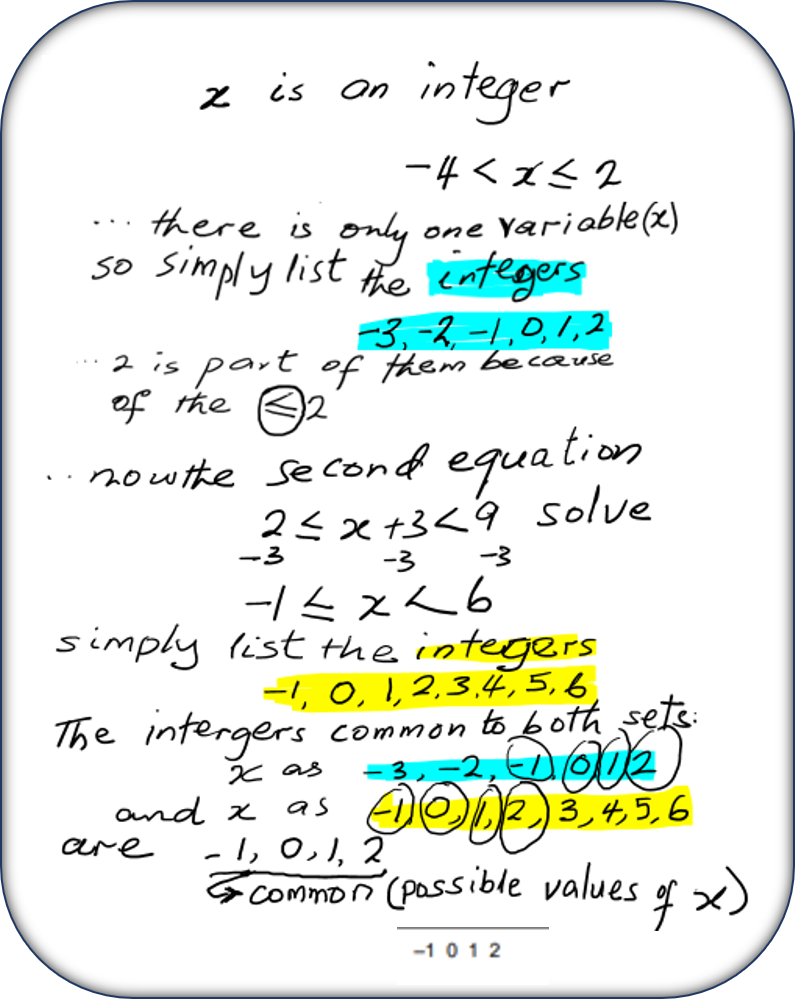 x is an integer
-4 < x ≤ 2
... there is only one variable(x)
so simply list the integers
-3, -2, -1, 0, 1, 2
... 2 is part of them because
of the ≤ 2
.. now the second equation
2 ≤ x +3 < 9 solve
-3 -3 -3
-1 ≤ x < 6
simply list the integers
-1, 0, 1, 2, 3, 4, 5, 6
The intergers common to both sets:
x as -3, -2, -1, 0, 1, 2
and x as -1, 0, 1, 2, 3, 4, 5, 6
are -1, 0, 1, 2
↳ common (possible values of x)
-1 0 1 2